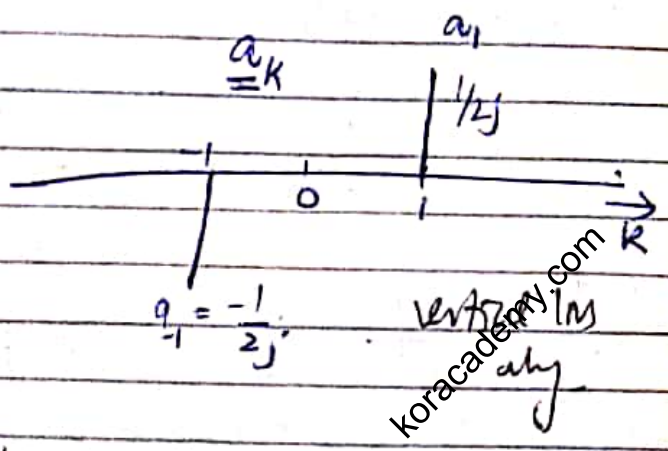 a₁
aₖ
1/2j
-1
0
1
k
a₋₁ = -1/2j
koracademy.com